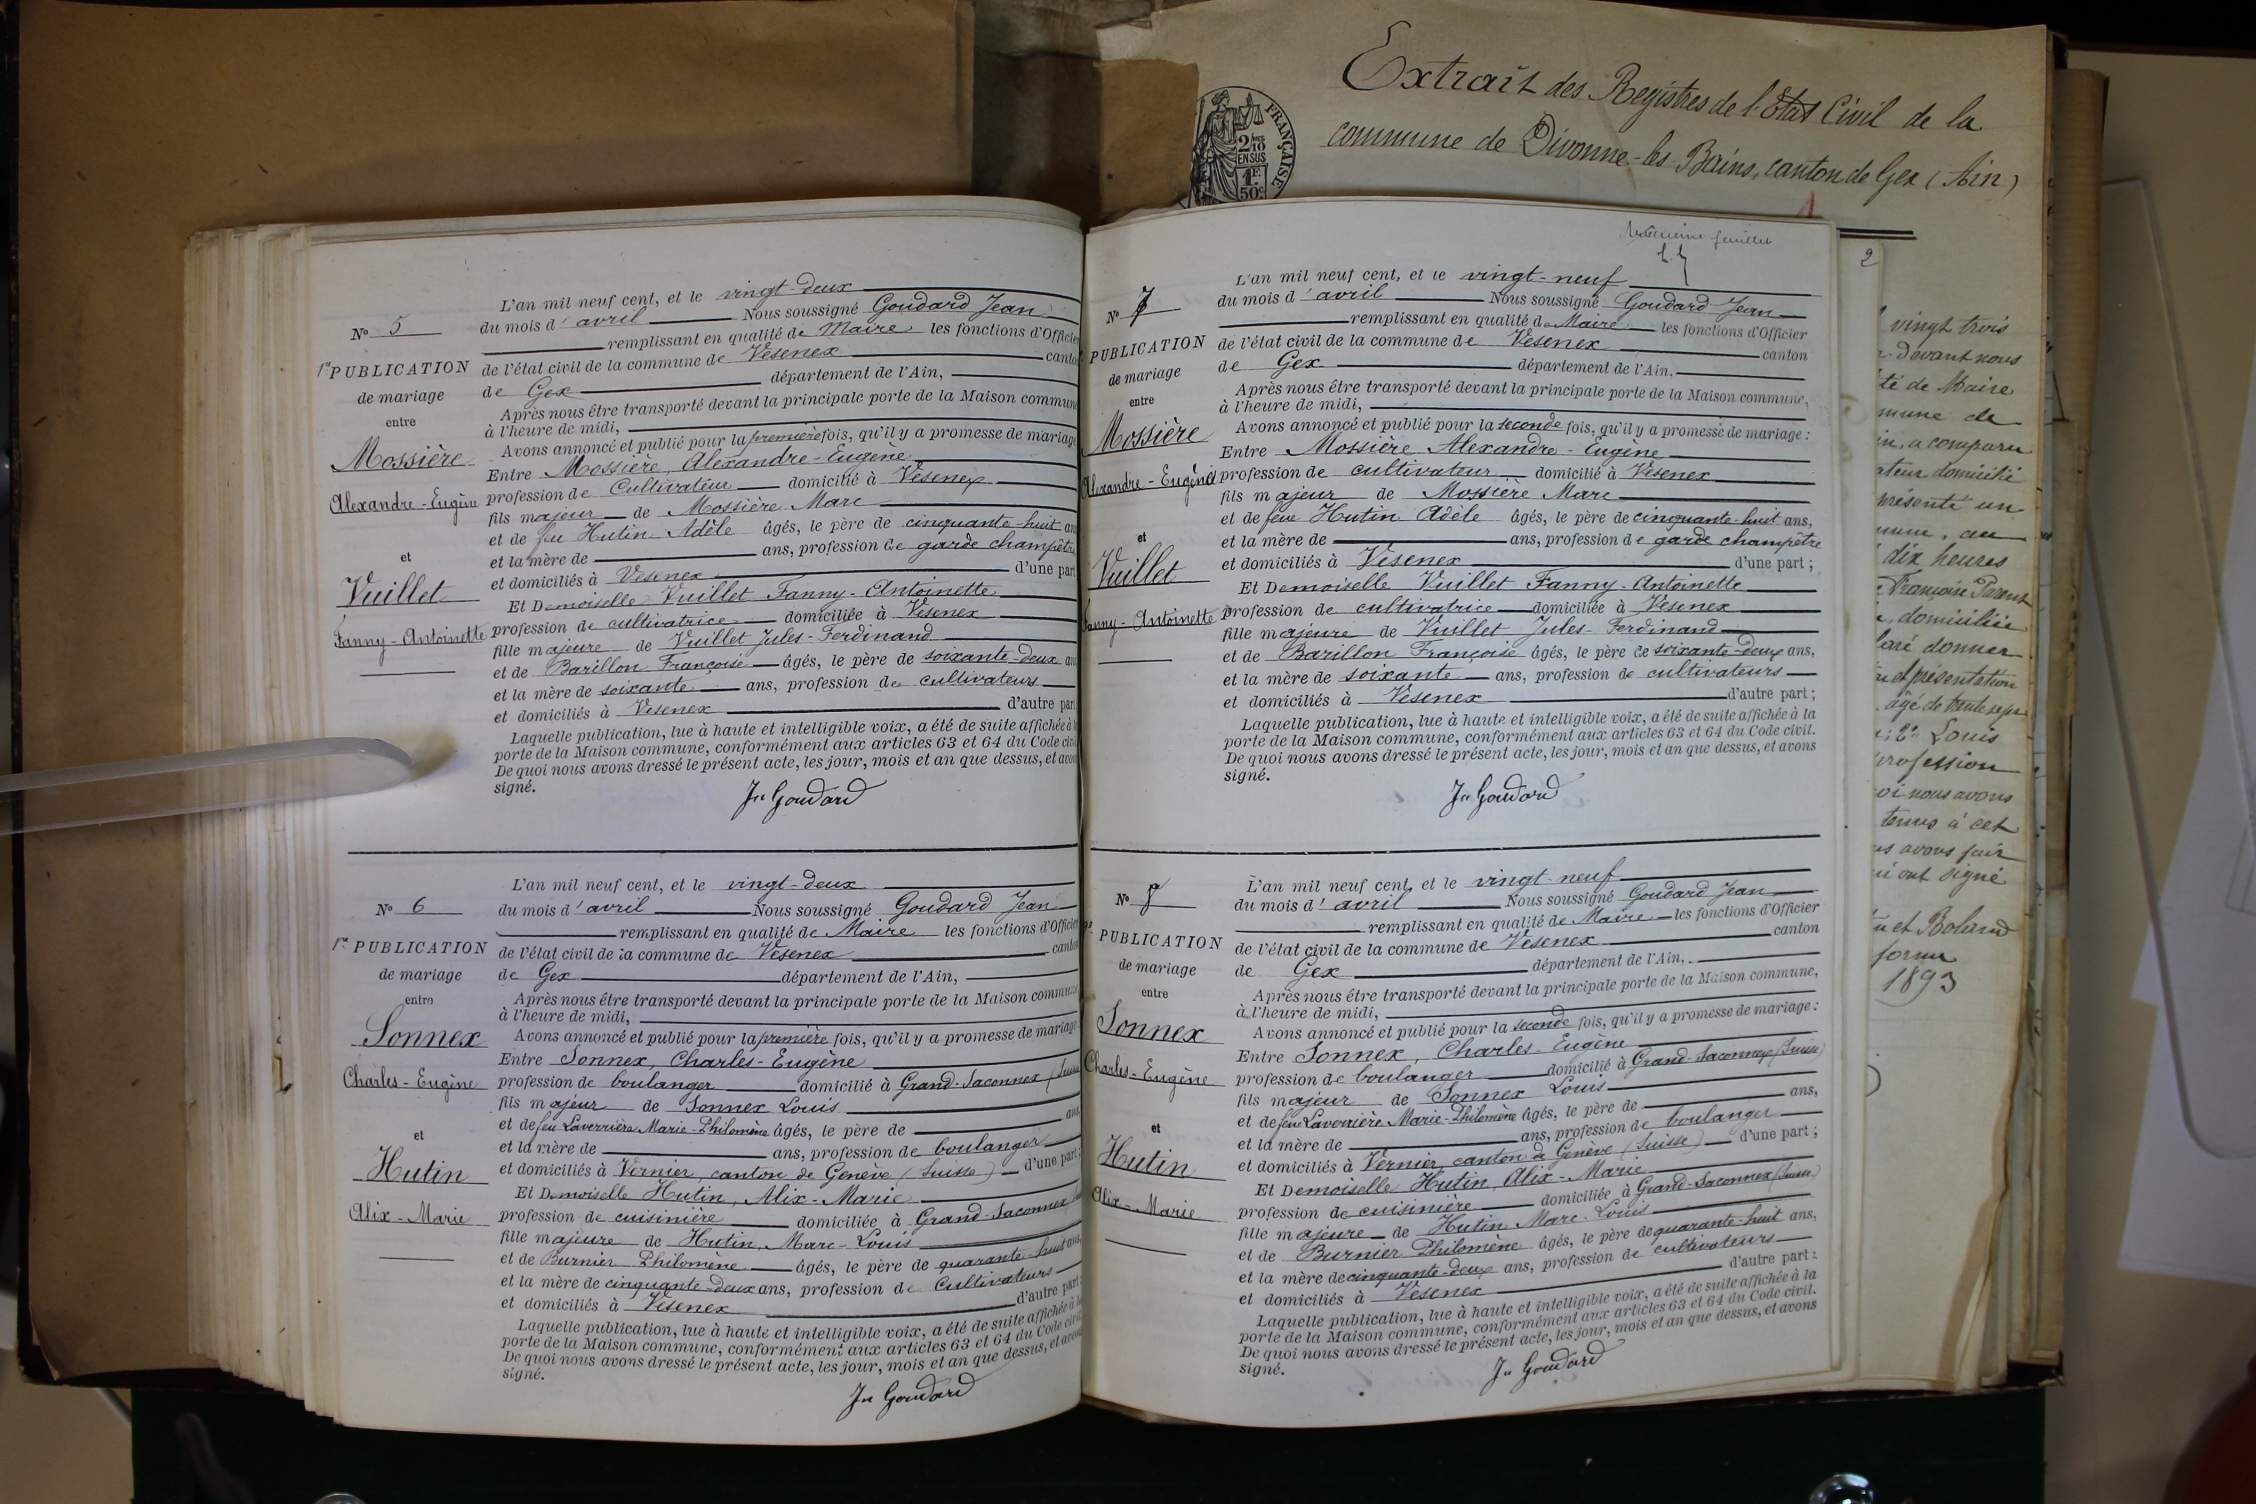 Extrait des Registres de l'Etat Civil de la
commune de Divonne-les-Bains, canton de Gex (Ain)
FRANÇAISE
2/10
EN SUS
1F
50c
N° 5
1re PUBLICATION
de mariage
entre
Mossière
Alexandre-Eugène
et
Vuillet
Fanny-Antoinette
L'an mil neuf cent, et le vingt-deux
du mois d'avril Nous soussigné Goudard Jean
remplissant en qualité de Maire les fonctions d'Officier
de l'état civil de la commune de Vésenex canton
de Gex département de l'Ain,
Après nous être transporté devant la principale porte de la Maison commune
à l'heure de midi,
Avons annoncé et publié pour la première fois, qu'il y a promesse de mariage
Entre Mossière, Alexandre-Eugène
profession de Cultivateur domicilié à Vésenex
fils majeur de Mossière Marc
et de feu Hutin Adèle âgés, le père de cinquante-huit ans
et la mère de ans, profession de garde champêtre
et domiciliés à Vésenex d'une part
Et Demoiselle Vuillet Fanny-Antoinette
profession de cultivatrice domiciliée à Vésenex
fille majeure de Vuillet Jules-Ferdinand
et de Barillon Françoise âgés, le père de soixante-deux ans
et la mère de soixante ans, profession de cultivateurs
et domiciliés à Vésenex d'autre part
Laquelle publication, lue à haute et intelligible voix, a été de suite affichée à la
porte de la Maison commune, conformément aux articles 63 et 64 du Code civil
De quoi nous avons dressé le présent acte, les jour, mois et an que dessus, et avons
signé.
Jn Goudard
N° 6
1re PUBLICATION
de mariage
entre
Sonnex
Charles-Eugène
et
Hutin
Alix-Marie
L'an mil neuf cent, et le vingt-deux
du mois d'avril Nous soussigné Goudard Jean
remplissant en qualité de Maire les fonctions d'Officier
de l'état civil de la commune de Vésenex canton
de Gex département de l'Ain,
Après nous être transporté devant la principale porte de la Maison commune
à l'heure de midi,
Avons annoncé et publié pour la première fois, qu'il y a promesse de mariage
Entre Sonnex, Charles-Eugène
profession de boulanger domicilié à Grand-Saconnex (Suisse
fils majeur de Sonnex Louis
et de feu Laverrière Marie-Philomène âgés, le père de ans,
et la mère de ans, profession de boulanger
et domiciliés à Vernier, canton de Genève (Suisse) d'une part;
Et Demoiselle Hutin, Alix-Marie
profession de cuisinière domiciliée à Grand-Saconnex
fille majeure de Hutin, Marc-Louis
et de Burnier Philomène âgés, le père de quarante-huit ans,
et la mère de cinquante-deux ans, profession de Cultivateurs
et domiciliés à Vésenex d'autre part
Laquelle publication, lue à haute et intelligible voix, a été de suite affichée à la
porte de la Maison commune, conformément aux articles 63 et 64 du Code civil
De quoi nous avons dressé le présent acte, les jour, mois et an que dessus, et avons
signé.
Jn Goudard
feuillet
N° 7
PUBLICATION
de mariage
entre
Mossière
Alexandre-Eugène
et
Vuillet
Fanny-Antoinette
L'an mil neuf cent, et le vingt-neuf
du mois d'avril Nous soussigné Goudard Jean
remplissant en qualité de Maire les fonctions d'Officier
de l'état civil de la commune de Vésenex canton
de Gex département de l'Ain.
Après nous être transporté devant la principale porte de la Maison commune,
à l'heure de midi,
Avons annoncé et publié pour la seconde fois, qu'il y a promesse de mariage :
Entre Mossière Alexandre-Eugène
profession de cultivateur domicilié à Vésenex
fils majeur de Mossière Marc
et de feue Hutin Adèle âgés, le père de cinquante-huit ans,
et la mère de ans, profession de garde champêtre
et domiciliés à Vésenex d'une part ;
Et Demoiselle Vuillet Fanny-Antoinette
profession de cultivatrice domiciliée à Vésenex
fille majeure de Vuillet Jules-Ferdinand
et de Barillon Françoise âgés, le père de soixante-deux ans,
et la mère de soixante ans, profession de cultivateurs
et domiciliés à Vésenex d'autre part ;
Laquelle publication, lue à haute et intelligible voix, a été de suite affichée à la
porte de la Maison commune, conformément aux articles 63 et 64 du Code civil.
De quoi nous avons dressé le présent acte, les jour, mois et an que dessus, et avons
signé.
Jn Goudard
N° 8
2e PUBLICATION
de mariage
entre
Sonnex
Charles-Eugène
et
Hutin
Alix-Marie
L'an mil neuf cent, et le vingt-neuf
du mois d'avril Nous soussigné Goudard Jean
remplissant en qualité de Maire les fonctions d'Officier
de l'état civil de la commune de Vésenex canton
de Gex département de l'Ain,
Après nous être transporté devant la principale porte de la Maison commune,
à l'heure de midi,
Avons annoncé et publié pour la seconde fois, qu'il y a promesse de mariage :
Entre Sonnex, Charles-Eugène
profession de boulanger domicilié à Grand-Saconnex (Suisse)
fils majeur de Sonnex Louis
et de feue Laverrière Marie-Philomène âgés, le père de ans,
et la mère de ans, profession de boulanger
et domiciliés à Vernier, canton de Genève (Suisse) d'une part ;
Et Demoiselle Hutin, Alix-Marie
profession de cuisinière domiciliée à Grand-Saconnex (Suisse)
fille majeure de Hutin Marc-Louis
et de Burnier Philomène âgés, le père de quarante-huit ans,
et la mère de cinquante-deux ans, profession de cultivateurs
et domiciliés à Vésenex d'autre part :
Laquelle publication, lue à haute et intelligible voix, a été de suite affichée à la
porte de la Maison commune, conformément aux articles 63 et 64 du Code civil.
De quoi nous avons dressé le présent acte, les jour, mois et an que dessus, et avons
signé.
Jn Goudard
2
vingt trois
devant nous
té de Maire
mune de
in, a comparu
ateur domicilié
présenté un
mune, au
dix heures
Françoise Parent
domiciliée
laré donner
et présentation
âgé de trente sept
2° Louis
profession
oi nous avons
tenus à cet
us avons fait
ui ont signé
et Boland
forme
1893